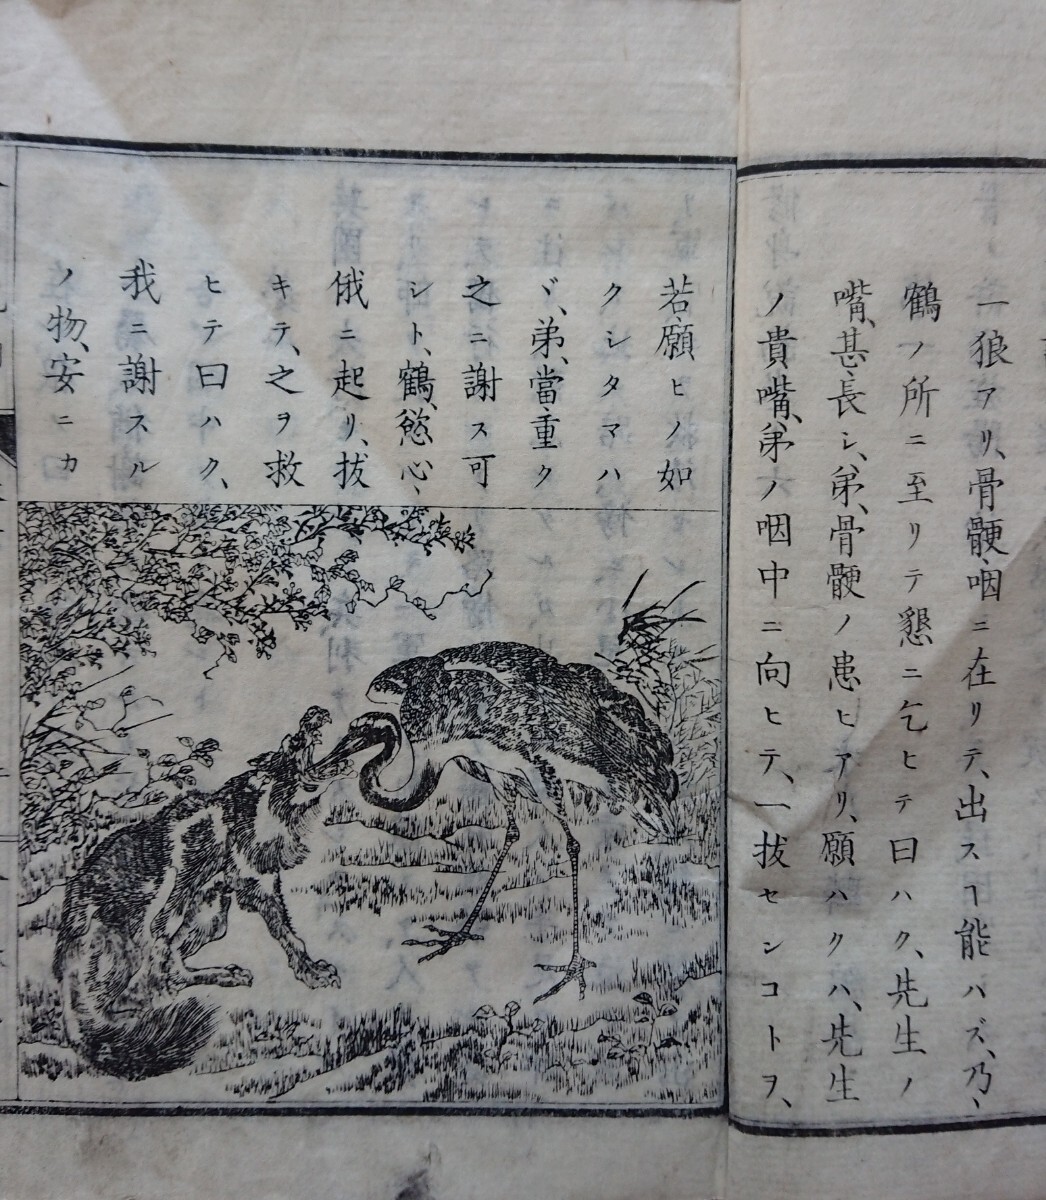 一狼アリ、骨骾、咽ニ在リテ、出スヿ能ハズ、乃、
鶴ノ所ニ至リテ懇ニ乞ヒテ曰ハク、先生ノ
嘴、甚、長シ、弟、骨骾ノ患ヒアリ、願ハクハ、先生
ノ貴嘴、弟ノ咽中ニ向ヒテ、一抜センコトヲ、
若、願ヒノ如
クシタマハ
ヾ、弟、當、重ク
之ニ謝ス可
シト、鶴、慾心、
俄ニ起リ、抜
キテ、之ヲ救
ヒテ曰ハク、
我ニ謝スル
ノ物、安ニカ